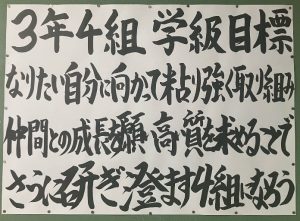 3年4組 学級目標
なりたい自分に向かって粘り強く取り組み
仲間との成長を願い高い質を求めることで
さらに研ぎ澄ます4組になろう